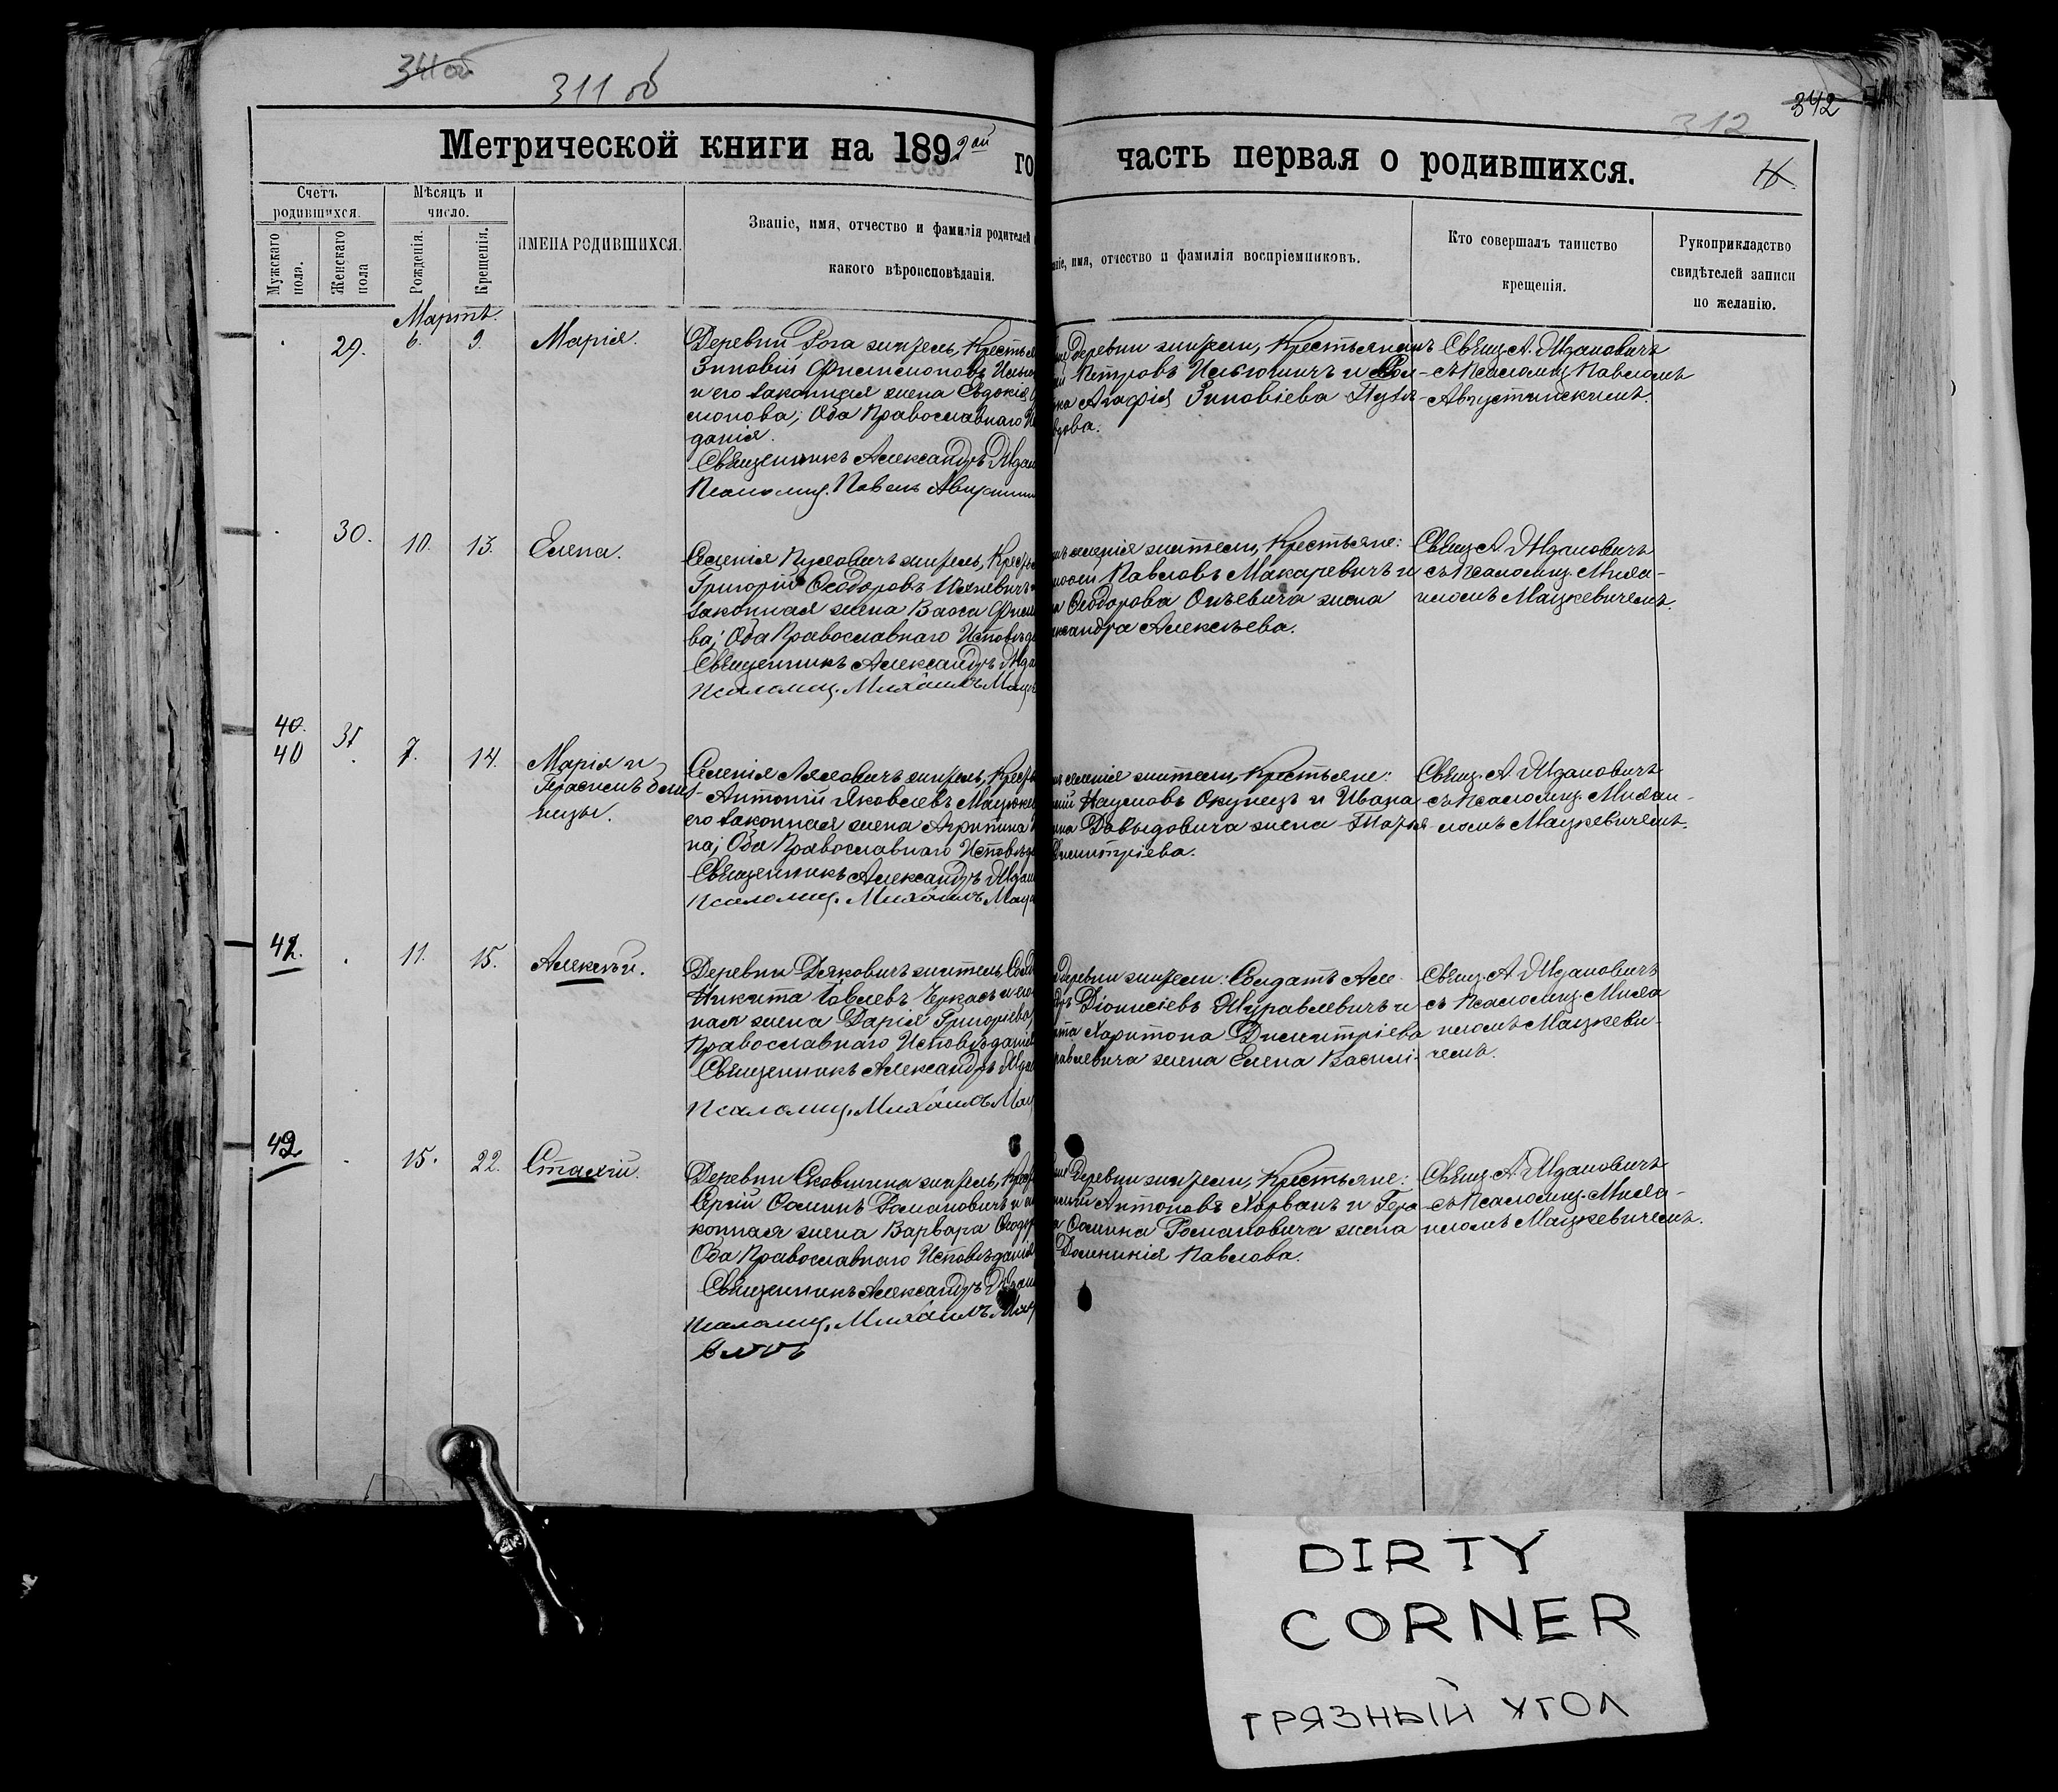 341 об
311 об
342
312
Метрической книги на 1892ой го
часть первая о родившихся.
Счетъ родившихся.
Мужскаго пола.
Женскаго пола
Мѣсяцъ и число.
Рожденія.
Крещенія.
ИМЕНА РОДИВШИХСЯ.
Званіе, имя, отчество и фамилія родителей
какого вѣроисповѣданія.
ніе, имя, отчество и фамилія воспріемниковъ.
Кто совершалъ таинство
крещенія.
Рукоприкладство
свидѣтелей записи
по желанію.
Мартъ.
29. 6. 9. Марія.
Деревни Рога житель, Крестья
Зиновій Филимоновъ
и его законная жена Евдокія
монова; Оба Православнаго И
данія.
Священникъ Александръ Ждан
Псаломщ. Павелъ Августин
деревни жители, Крестьянинъ
Петровъ и
Агафія Зиновіева
дова.
Свящ. А. Ждановичъ
съ Псаломщ. Павломъ
Августинскимъ.
30. 10. 13. Елена.
Селенія житель, Крестья
Григорій Ѳеодоровъ
законная жена Васса Фили
ва; Оба Православнаго Исповѣда
Священникъ Александръ Жда
Псаломщ. Михаилъ Мацк
селенія жители, Крестьяне:
Павловъ Макаревичъ и
Ѳеодорова жена
ександра Алексѣева.
Свящ. А. Ждановичъ
съ Псаломщ. Миха-
иломъ Мацкевичемъ.
40.
40 31. 7. 14. Марія и
Герасимъ близ
нецы.
Селенія Ляховичъ житель, Крестья
Антоній Яковлевъ Мацкев
его законная жена Агрипина
на; Оба Православнаго Исповѣда
Священникъ Александръ Ждан
Псаломщ. Михаилъ Мацк
селенія жители, Крестьяне:
Наумовъ Окунецъ и Ивана
Давыдовича жена
Димитріева.
Свящ. А. Ждановичъ
съ Псаломщ. Михаи-
ломъ Мацкевичемъ.
41. 11. 15. Алексѣй.
Деревни Дяковичъ житель, Солд
Никита Іовлевъ Черкасъ и его
ная жена Дарія Григоріева,
Православнаго Исповѣданія
Священникъ Александръ Ждан
Псаломщ. Михаилъ Мац
деревни жители: Солдатъ Але
Діонисіевъ Журавлевичъ и
Харитона Димитріева
равлевича жена Елена Василі-
Свящ. А. Ждановичъ
съ Псаломщ. Миха
иломъ Мацкеви-
чемъ.
42 15. 22. Стахій.
Деревни житель, Крест
Сергій Саминъ Романовичъ и
конная жена Варвара Ѳеодор
Оба Православнаго Исповѣданія
Священникъ Александръ Ждан
Псаломщ. Михаилъ Мац
деревни жители, Крестьяне:
Антоновъ Хорванъ и Гера
Самина Романовича жена
Домникія Павлова.
Свящ. А. Ждановичъ
съ Псаломщ. Миха-
иломъ Мацкевичемъ.
DIRTY
CORNER
ГРЯЗНЫЙ УГОЛ